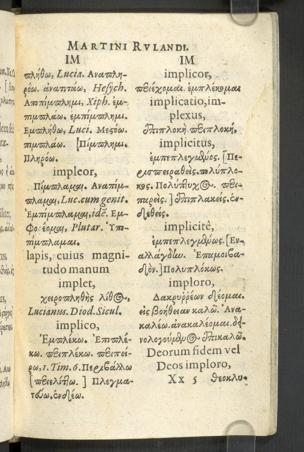 MARTINI RVLANDI.
IM
πλήθω, Lucia. Αναπλη-
ρόω. ἀναπιπλω, Hesych.
Αποπίμπλημι, Xiph. ἐμ-
πιμπλάω. ἐμπίμπλημι.
Εμπλήθω, Luci. Μεσόω.
πιμπλάω. [Πίμπλημι.
Πληρόω.
impleor,
Πίμπλαμαι. Αναπίμ-
πλαμαι, Luc. cum genit.
Ἐμπίμπλαμαι, idē. Ἐμ-
Plutar. Ὑπο-
πίμπλαμαι.
lapis, cuius magni
tudo manum
implet,
χειροπληθὴς λίθος,
Lucianus. Diod. Sicul.
implico,
Ἐμπλέκω. Ἐπιπλέ-
κω. περιπλέκω. περιπεί-
ρω, 1. Tim. 6. Περιβάλλω
[περιελίττω.] Πλεγμα-
τόω, ἐνδέω.
IM
implicor,
περιέχομαι. ἐμπλέκομαι
implicatio, im-
plexus,
ἐπιπλοκὴ. περιπλοκή.
implicitus,
ἐμπεπλεγμένος. [Πε-
ρισπειραθείς. πολύπλο-
κος. Πολύπτυχος. περι-
πειρείς.] ἐπιπλακείς. ἐν-
δεθείς.
implicitè,
ἐμπεπλεγμένως. [Εν-
αλλάγδην. Ἐπαμοιβα-
δόν.] Πολυπλόκως.
imploro,
Δακρυῤῥέων δέομαι.
εἰς βοήθειαν καλῶ. Ἀνα-
καλέω. ἀνακαλέομαι.
ἐπικαλῶ.
Deorum fidem vel
Deos imploro,
Xx 5 θεοκλυ-